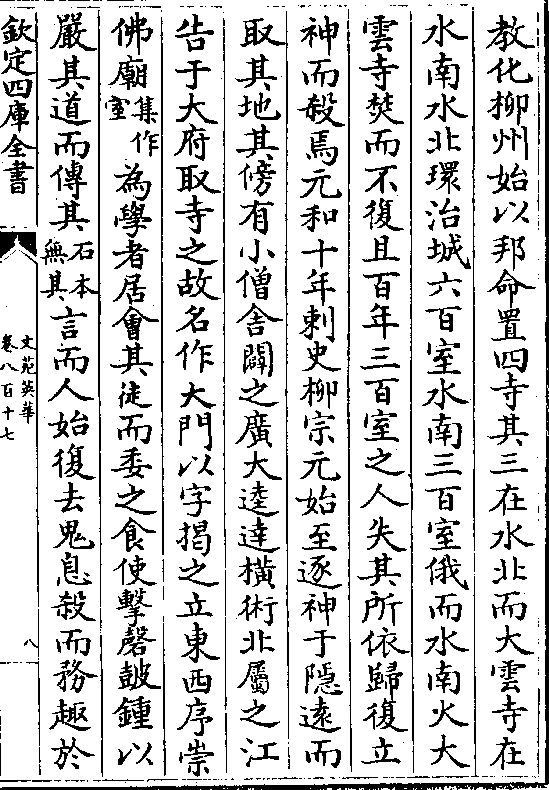 教化柳州始以邦命置四寺其三在水北而大雲寺在
水南水北環治城六百室水南三百室俄而水南火大
雲寺焚而不復且百年三百室之人失其所依歸復立
神而殺焉元和十年刺史柳宗元始至逐神于隠逺而
取其地其傍有小僧舎闢之廣大逵達橫術北屬之江
告于大府取寺之故名作大門以字揭之立東西序崇
佛廟集作室為學者居㑹其徒而委之食使擊磬鼓鍾以
嚴其道而傳其石本無其言而人始復去鬼息殺而務趣於
欽定四庫全書
文苑英華
卷八百十七
八